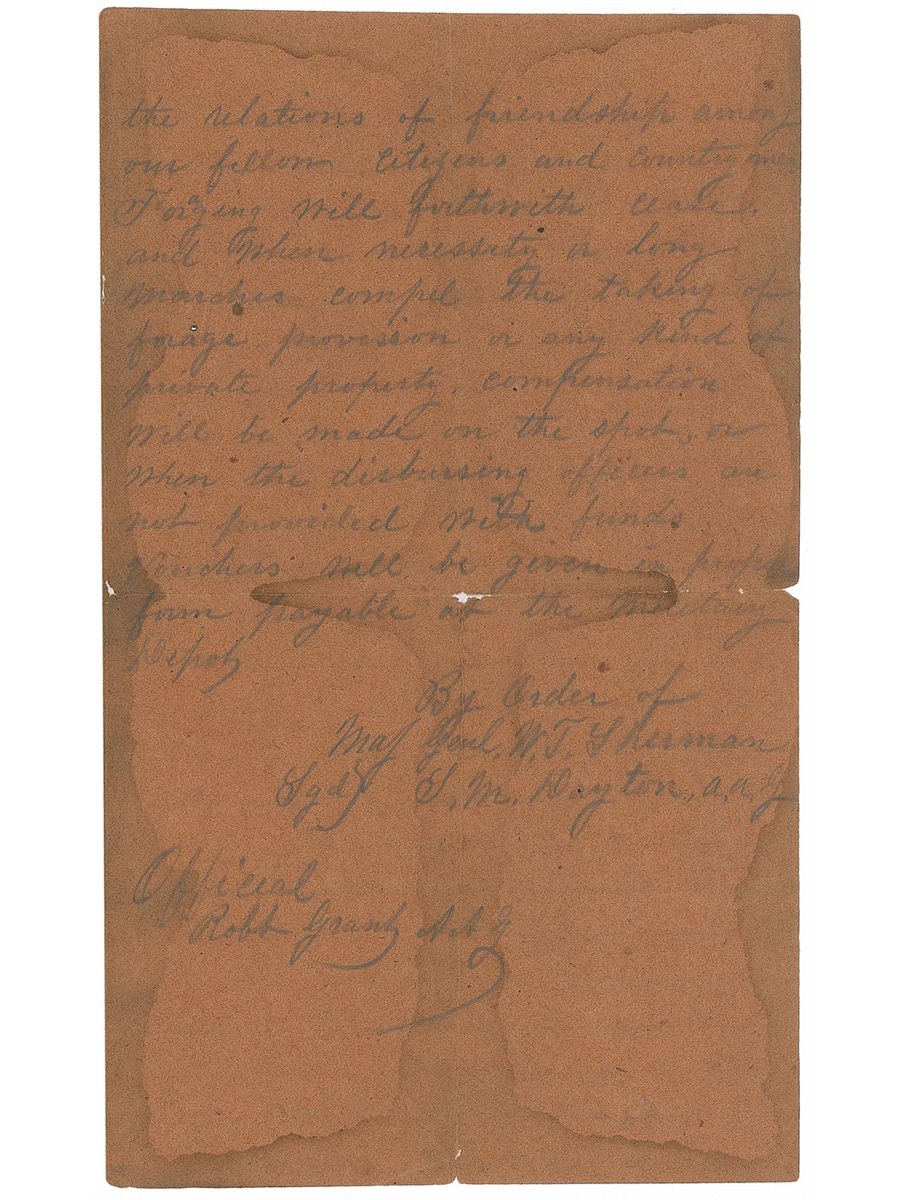 the relations of friendship among
our fellow citizens and countrymen
Forging will forthwith cease.
and when necessity or long
marches compel the taking of
forage provission or any kind of
private property. compensation
will be made on the spot, or
when the disbursing officers are
not provided with funds.
vouchers will be given in proper
form payable at the military
Depot
By Order of
Maj Genl. W. T. Sherman
Sgd S. M. Dayton, A. A. G
Official
Robt Grant A A G